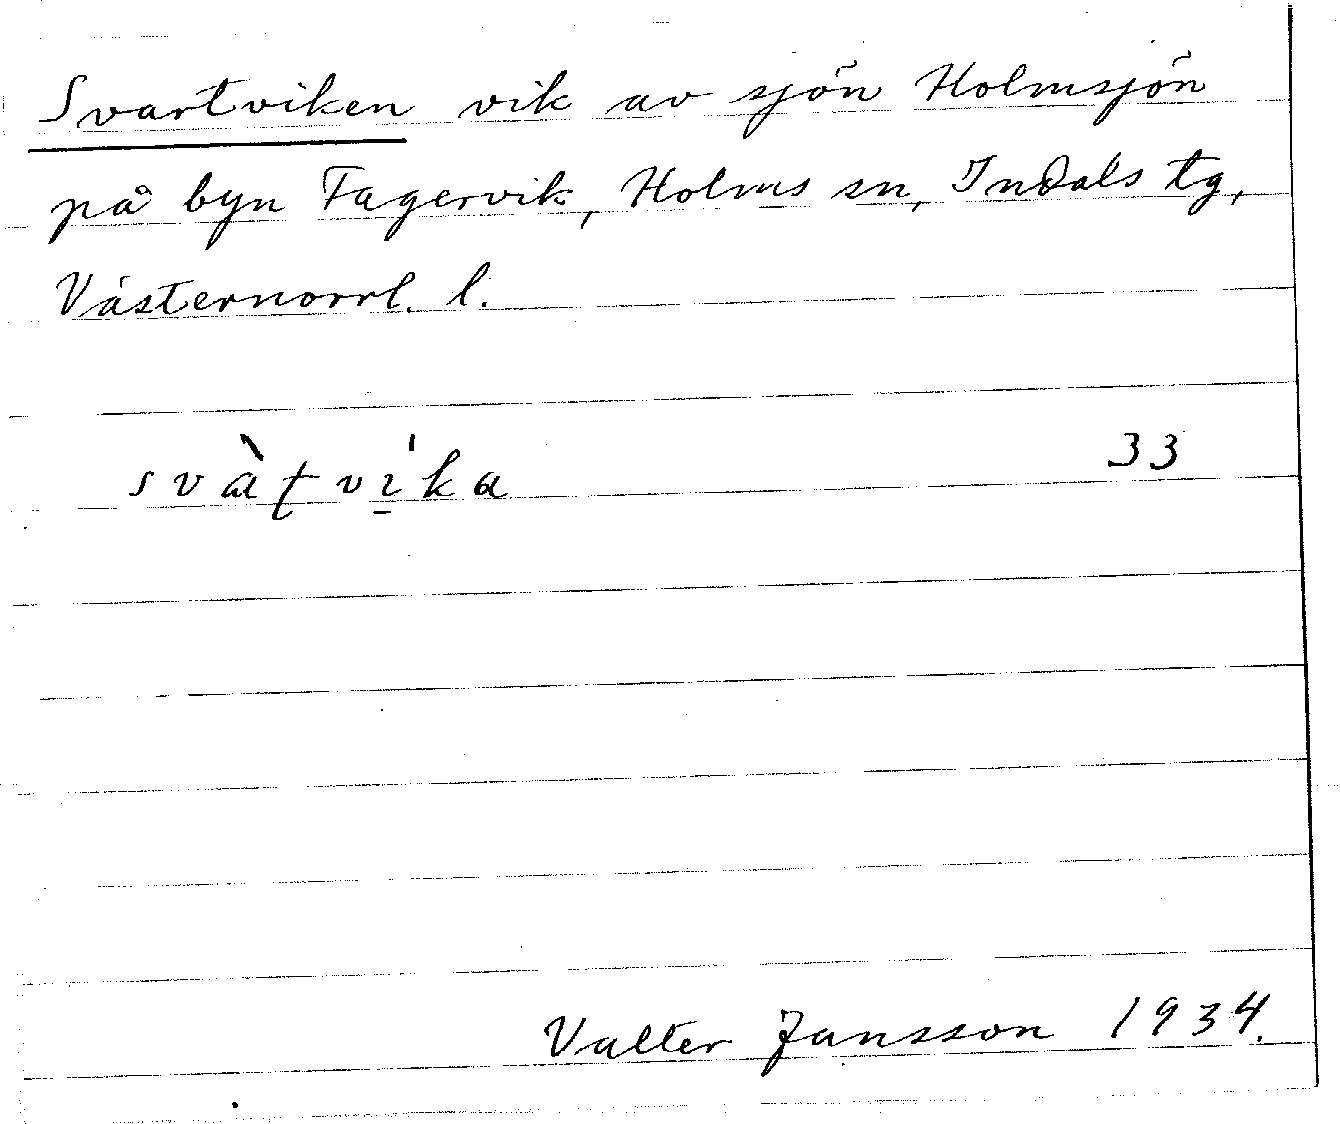 Svartviken vik av sjön Holmsjön
på byn Fagervik, Holms sn, Indals tg,
Västernorrl. l.
svàʈvi̠ˈka 33
Valter Jansson 1934.